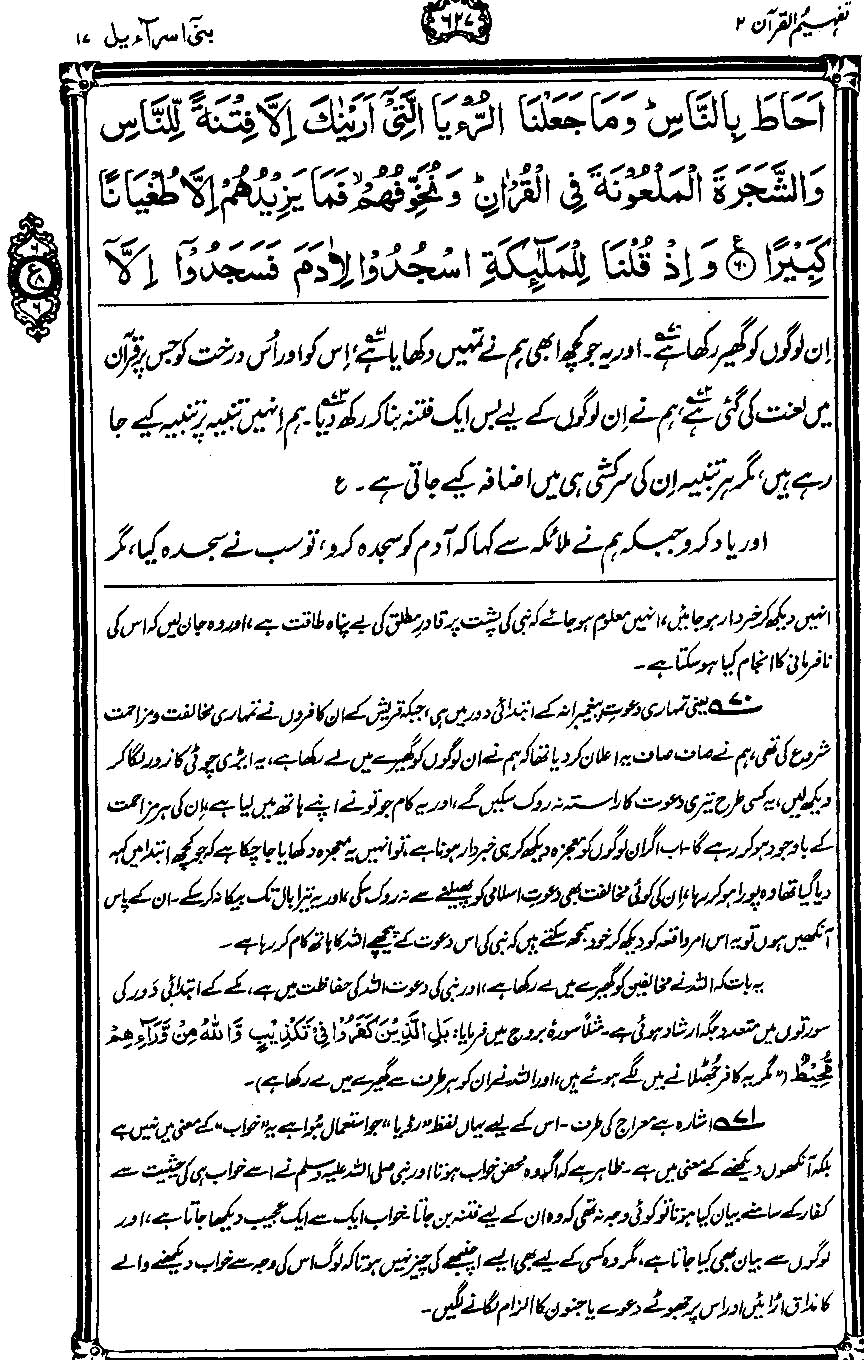 تفہیم القرآن ۲
۶۲۷
بنیٓ اسرآءیل ۱۷
اَحَاطَ بِالنَّاسِ ؕ وَمَا جَعَلْنَا الرُّءْیَا الَّتِیْۤ اَرَیْنٰكَ اِلَّا فِتْنَةً لِّلنَّاسِ
وَالشَّجَرَةَ الْمَلْعُوْنَةَ فِی الْقُرْاٰنِ ؕ وَنُخَوِّفُهُمْ ۙ فَمَا یَزِیْدُهُمْ اِلَّا طُغْیَانًا
كَبِیْرًا ﴿۶۰﴾ ع وَاِذْ قُلْنَا لِلْمَلٰٓئِكَةِ اسْجُدُوْا لِاٰدَمَ فَسَجَدُوْۤا اِلَّاۤ
۶ ع ۸ ۶
اِن لوگوں کو گھیر رکھا ہے۷۰۔ اور یہ جو کچھ ابھی ہم نے تمہیں دکھایا ہے۷۱، اِس کو اور اُس درخت کو جس پر قرآن
میں لعنت کی گئی ہے۷۲، ہم نے اِن لوگوں کے لیے بس ایک فتنہ بنا کر رکھ دیا۷۳۔ ہم اِنہیں تنبیہ پر تنبیہ کیے جا
رہے ہیں، مگر ہر تنبیہ اِن کی سرکشی ہی میں اضافہ کیے جاتی ہے۔ ع
اور یاد کرو جبکہ ہم نے ملائکہ سے کہا کہ آدم کو سجدہ کرو، تو سب نے سجدہ کیا، مگر
انہیں دیکھ کر خبردار ہو جائیں، انہیں معلوم ہو جائے کہ نبی کی پشت پر قادرِ مطلق کی بے پناہ طاقت ہے، اور وہ جان لیں کہ اس کی
نافرمانی کا انجام کیا ہو سکتا ہے۔
۷۰ یعنی تمہاری دعوتِ پیغمبرانہ کے ابتدائی دور میں ہی، جبکہ قریش کے ان کافروں نے تمہاری مخالفت و مزاحمت
شروع کی تھی، ہم نے صاف صاف یہ اعلان کر دیا تھا کہ ہم نے ان لوگوں کو گھیرے میں لے رکھا ہے، یہ ایڑی چوٹی کا زور لگا کر
دیکھ لیں، یہ کسی طرح تیری دعوت کا راستہ نہ روک سکیں گے، اور یہ کام جو تو نے اپنے ہاتھ میں لیا ہے، اِن کی ہر مزاحمت
کے باوجود ہو کر رہے گا۔ اب اگر ان لوگوں کو معجزہ دیکھ کر ہی خبردار ہونا ہے، تو انہیں یہ معجزہ دکھایا جا چکا ہے کہ جو کچھ ابتدا میں کہہ
دیا گیا تھا وہ پورا ہو کر رہا، اِن کی کوئی مخالفت بھی دعوتِ اسلامی کو پھیلنے سے نہ روک سکی، اور یہ تیرا بال تک بیکا نہ کر سکے۔ ان کے پاس
آنکھیں ہوں تو یہ اس امرِ واقعہ کو دیکھ کر خود سمجھ سکتے ہیں کہ نبی کی اس دعوت کے پیچھے اللہ کا ہاتھ کام کر رہا ہے۔
یہ بات کہ اللہ نے مخالفین کو گھیرے میں لے رکھا ہے، اور نبی کی دعوت اللہ کی حفاظت میں ہے، مکے کے ابتدائی دَور کی
سورتوں میں متعدد جگہ ارشاد ہوئی ہے۔ مثلاً سورۂ بروج میں فرمایا: بَلِ الَّذِیْنَ كَفَرُوْا فِیْ تَكْذِیْبٍ وَّاللهُ مِنْ وَّرَآءِهِمْ
مُّحِیْطٌ (”مگر یہ کافر جُھٹلانے میں لگے ہوئے ہیں، اور اللہ نے ان کو ہر طرف سے گھیرے میں لے رکھا ہے)۔
۷۱ اشارہ ہے معراج کی طرف۔ اس کے لیے یہاں لفظ ”رؤیا“ جو استعمال ہُوا ہے یہ ”خواب“ کے معنی میں نہیں ہے
بلکہ آنکھوں دیکھنے کے معنی میں ہے۔ ظاہر ہے کہ اگر وہ محض خواب ہوتا اور نبی صلی اللہ علیہ وسلم نے اسے خواب ہی کی حیثیت سے
کفار کے سامنے بیان کیا ہوتا تو کوئی وجہ نہ تھی کہ وہ ان کے لیے فتنہ بن جاتا۔ خواب ایک سے ایک عجیب دیکھا جاتا ہے، اور
لوگوں سے بیان بھی کیا جاتا ہے، مگر وہ کسی کے لیے بھی ایسے اچنبھے کی چیز نہیں ہوتا کہ لوگ اس کی وجہ سے خواب دیکھنے والے
کا مذاق اڑائیں اور اس پر جھوٹے دعوے یا جنون کا الزام لگانے لگیں۔